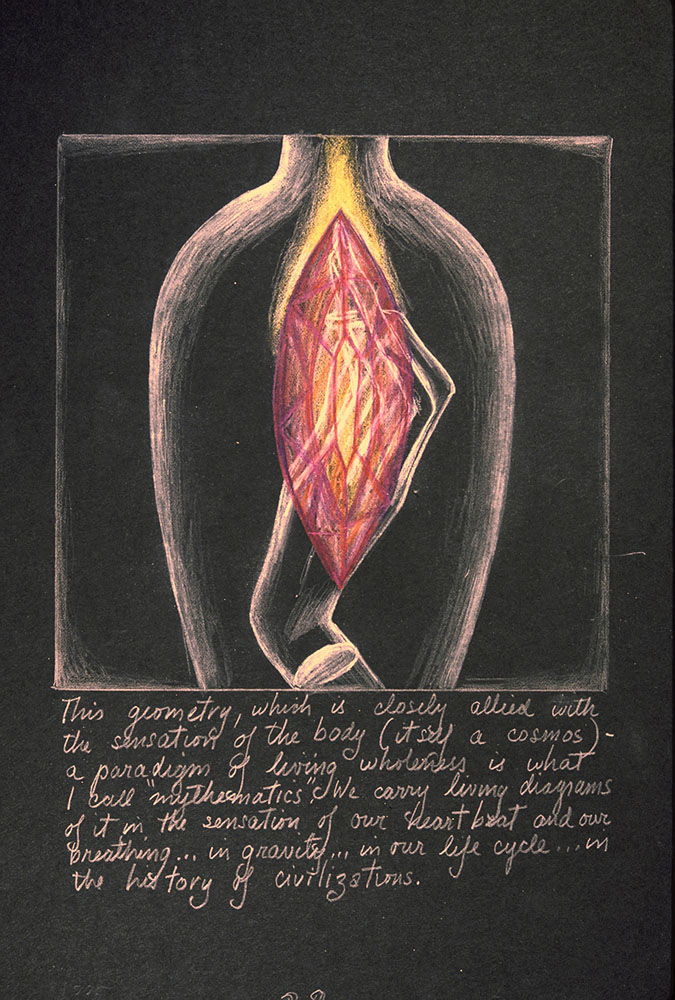 This geometry, which is closely allied with
the sensation of the body (itself a cosmos) -
a paradigm of living wholeness is what
I call "mythematics". We carry living diagrams
of it in the sensation of our heart beat and our
breathing... in gravity... in our life cycle... in
the history of civilizations.